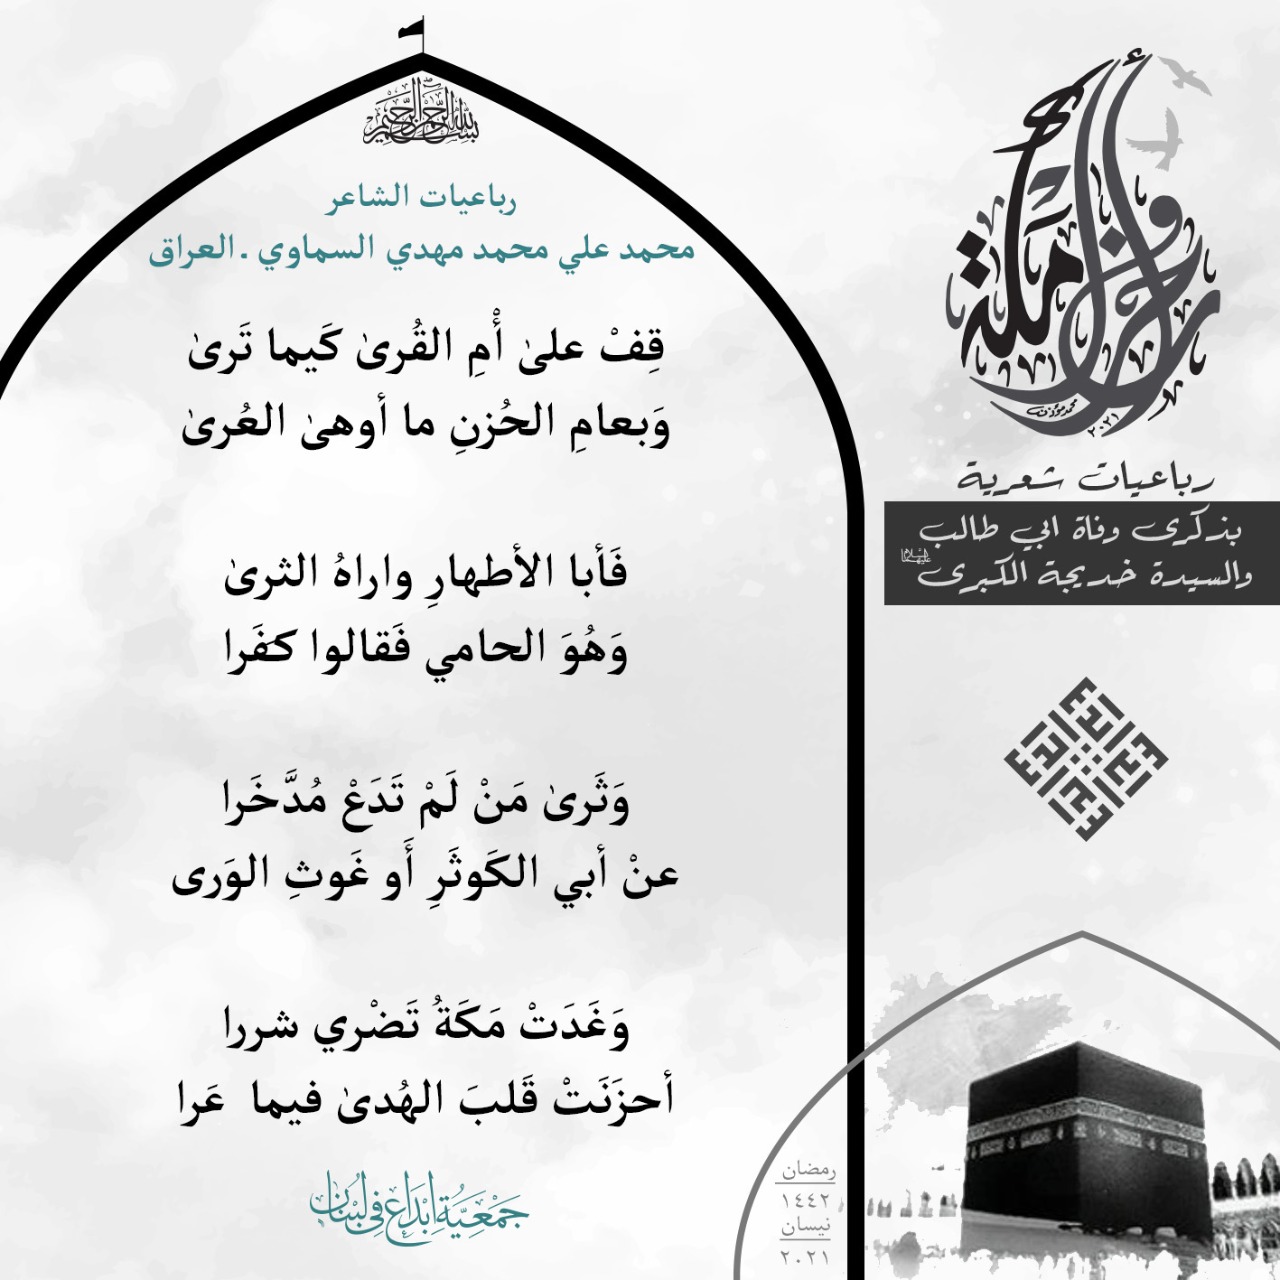 بسم الله الرحمن الرحيم
رباعيات الشاعر
محمد علي محمد مهدي السماوي . العراق
قِفْ علىٰ أُمِ القُرىٰ كَيما تَرىٰ
وَبعامِ الحُزنِ ما أوهىٰ العُرىٰ
فَأبا الأطهارِ واراهُ الثرىٰ
وَهُوَ الحامي فَقالوا كفَرا
وَثَرىٰ مَنْ لَمْ تَدَعْ مُدَّخَرا
عنْ أبي الكَوثَرِ أَو غَوثِ الوَرى
وَغَدَتْ مَكَةُ تَضْري شررا
أحزَنَتْ قَلبَ الهُدىٰ فيما عَرا
جَمْعِيَّةُ إبْدَاع فِي لُبْنَان
محمد مؤذن
٢٠٢١
رباعيات شعرية
بذكرى وفاة ابي طالب
والسيدة خديجة الكبرى عليهما السلام
رمضان
١٤٤٢
نيسان
٢٠٢١